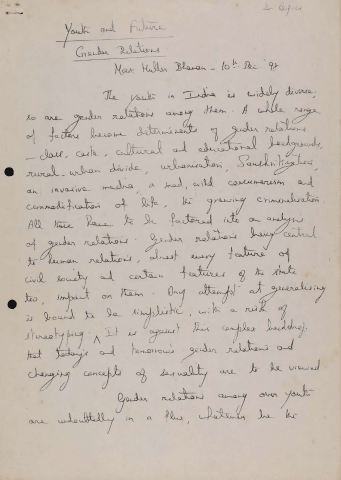 Youth and Future
Gender Relations
Max Muller Bhavan - 10th Dec '98
The youth in India is widely diverse,
so are gender relations among them. A whole range
of factors become determinants of gender relations
- class, caste, cultural and educational backgrounds,
rural-urban divide, urbanisation, Sanskritisation,
an invasive media, a mad, wild consumerism and
commodification of life, the growing criminalisation
All these have to be factored into an analysis
of gender relations. Gender relations being central
to human relations, almost every feature of
civil society and certain features of the state
too, impact on them. Any attempt at generalising
is bound to be simplistic, with a risk of
stereotyping. It is against this complex backdrop,
that todays and tomorrows gender relations and
changing concepts of sexuality are to be viewed
Gender relations among our youth
are undoubtedly in a flux, whatever be the